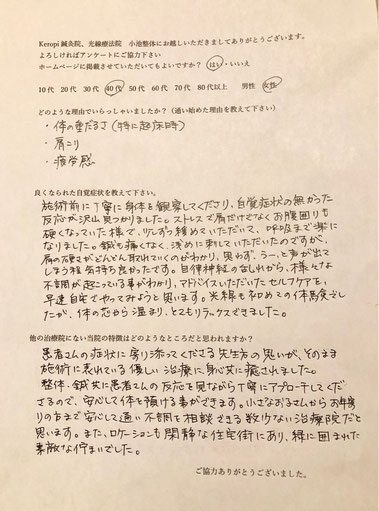 Keropi 鍼灸院、光線療法院　小池整体にお越しいただきましてありがとうございます。
よろしければアンケートにご協力下さい
ホームページに掲載させていただいてもよいですか？　はい・いいえ
10代　20代　30代　40代　50代　60代　70代　80代以上　男性　女性
どのような理由でいらっしゃいましたか？（通い始めた理由を教えて下さい）
・体の重だるさ（特に起床時）
・肩こり
・疲労感
良くなられた自覚症状を教えて下さい。
施術前に丁寧に身体を観察してくださり、自覚症状の無かった
反応が沢山見つかりました。ストレスで肩だけでなくお腹周りも
硬くなっていた様で、少しずつ緩めていただいて、呼吸まで楽に
なりました。鍼も痛くなく、浅めに刺していただいたのですが、
肩の硬さがどんどん取れていくのがわかり、思わず、うーっと声が出て
しまう程気持ち良かったです。自律神経の乱れから、様々な
不調が起こっている事がわかり、アドバイスいただいたセルフケアを、
早速自宅でやってみようと思います。光線も初めての体験でし
たが、体の芯から温まり、とてもリラックスできました。
他の治療院にない当院の特徴はどのようなところだと思われますか？
患者さんの症状に寄り添ってくださる先生方の思いが、そのまま
施術に表れている優しい治療に、身心共に癒されました。
整体・鍼共に患者さんの反応を見ながら丁寧にアプローチしてくだ
さるので、安心して体を預ける事ができます。小さなお子さんからお年寄
りの方まで安心して通い不調を相談できる数少ない治療院だと
思います。また、ロケーションも閑静な住宅街にあり、緑に囲まれた
素敵な佇まいでした。
ご協力ありがとうございました。